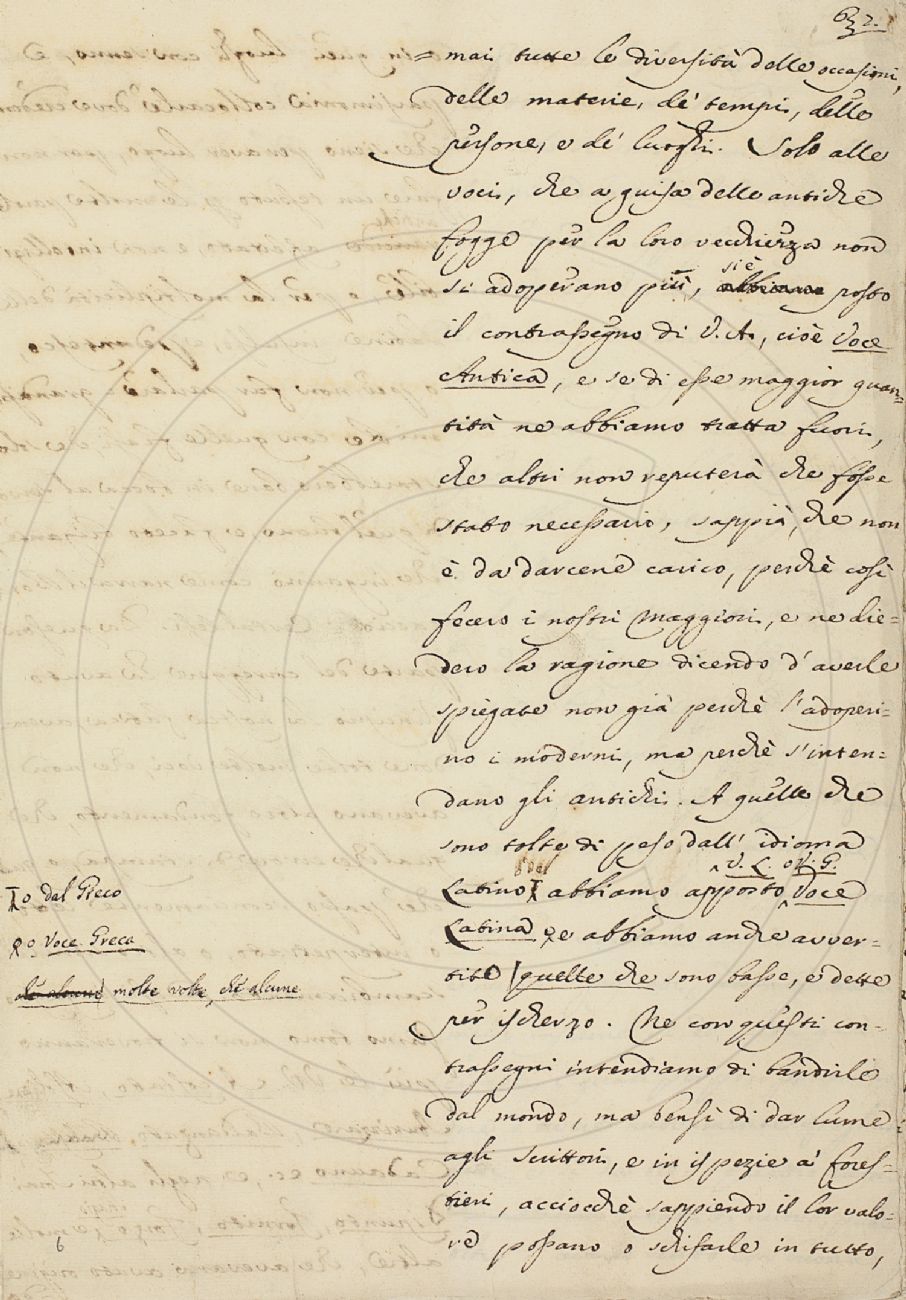 632.
= mai tutte le diversità delle occasioni,
delle materie, de' tempi, delle
persone, e de' luoghi. Solo alle
voci, che a guisa delle antiche
fogge per la loro vecchiezza non
si è
si adoperano più, abbiamo posto
il contrassegno di V. A., cioè Voce
Antica, e se di esse maggior quan=
tità ne abbiamo tratta fuori,
che altri non reputerà che fosse
stato necessario, sappia, che non
è da darcene carico, perchè così
fecero i nostri Maggiori, e ne die=
dero la ragione dicendo d'averle
spiegate non già perchè l'adoperi=
no i moderni, ma perchè s'inten=
dano gli antichi. A quelle che
sono tolte di peso dall'idioma
V. L. o V. G.
Latino abbiamo apposto Voce
Latina e abbiamo anche avver=
tito quelle che sono basse, e dette
per ischerzo. Ne con questi con=
trassegni intendiamo di bandirle
dal mondo, ma bensì di dar lume
agli scrittori, e in ispezie a' fores=
tieri, acciocchè sappiendo il lor valo=
re possano o schifarle in tutto,
o dal Greco
o Voce Greca
molte volte, che alcune
6